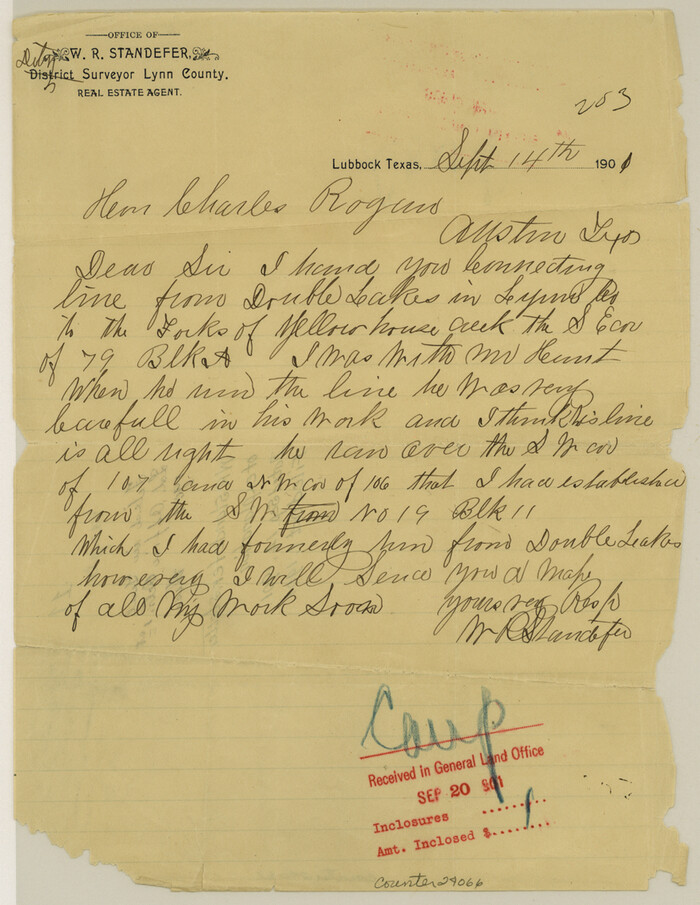 OFFICE OF
W. R. STANDEFER,
District Surveyor Lynn County.
REAL ESTATE AGENT.
253
Lubbock Texas, Sept 14th 1901
Hon Charles Rogan
Austin Texs
Dear Sir I hand you Connecting
line from Double Lakes in Lynn Co
to the Forks of Yellow house creek the S E cor
of 79 Blk A I was with Mr Hunt
When he run the line he was very
Carefull in his work and I think his line
is all right he ran over the S W cor
of 107 and N W cor of 106 that I had established
from the S W from No 19 Blk 11
Which I had formerly run from Double Lakes
how every I will Send you a Map
of all My Work Soon yours very Resp
W R Standefer
Camp
Received in General Land Office
SEP 20 901
Inclosures ..........
Amt. Inclosed $ 1 ........
Counter 29066